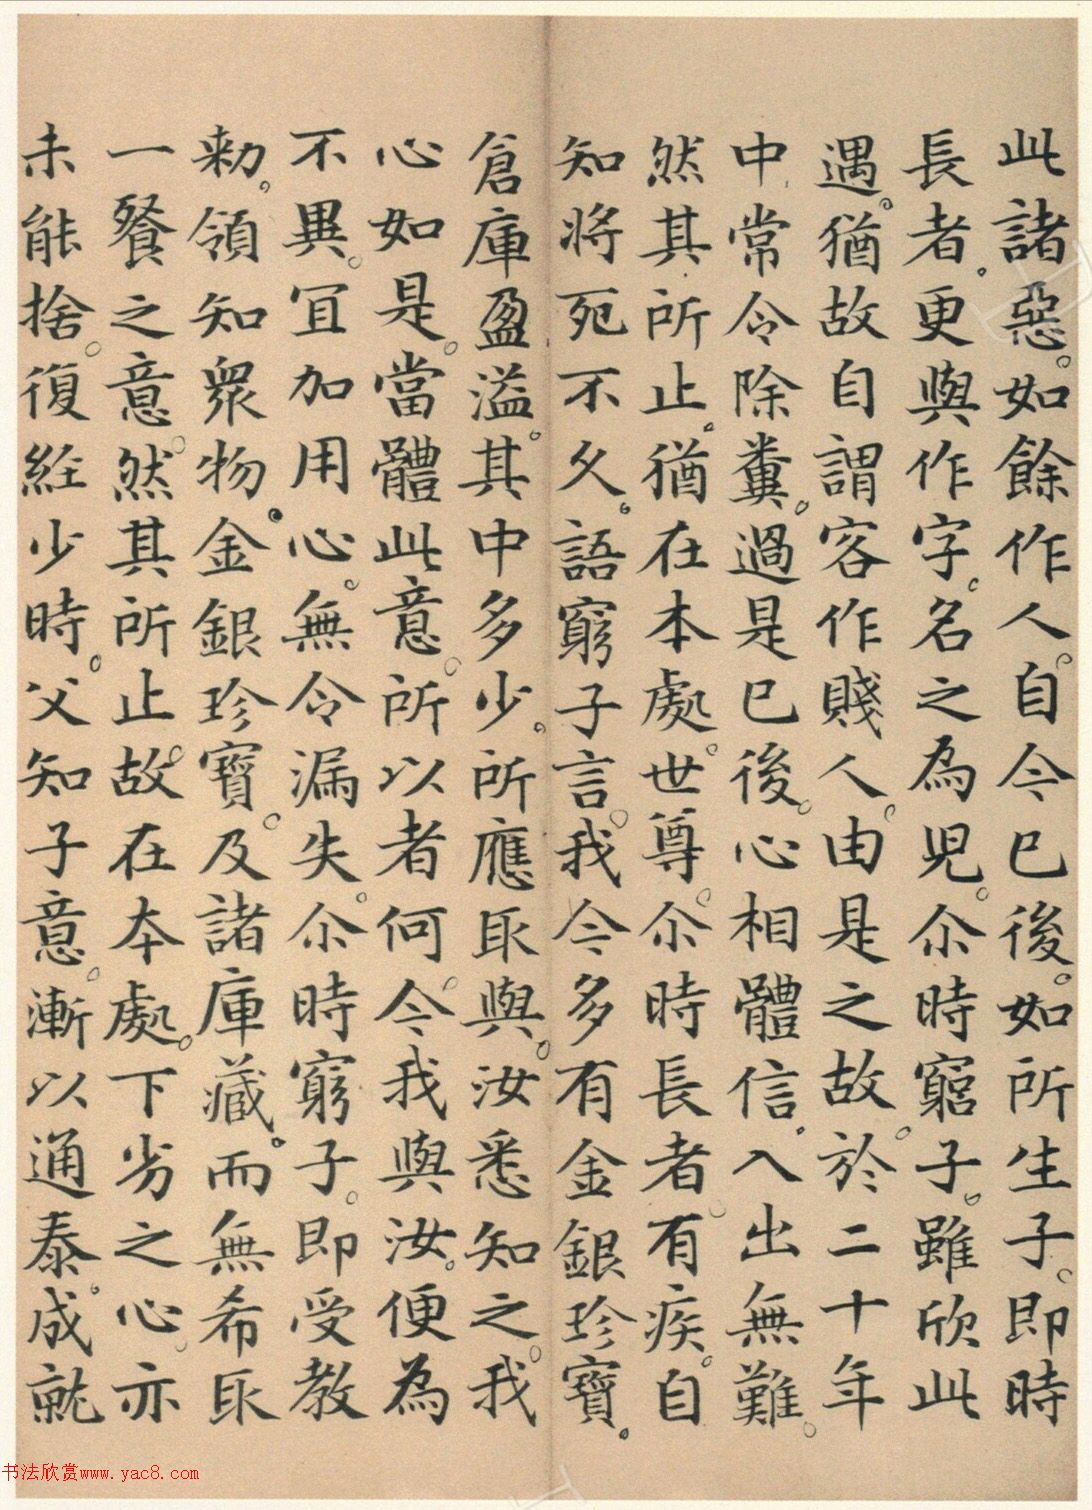 此諸惡。如餘作人。自今已後。如所生子。即時
長者。更與作字。名之為兒。尒時窮子。雖欣此
遇。猶故自謂客作賤人。由是之故。於二十年
中常令除糞。過是已後。心相體信。入出無難。
然其所止。猶在本處。世尊。尒時長者有疾。自
知將死不久。語窮子言。我今多有金銀珍寶。
倉庫盈溢。其中多少。所應取與。汝悉知之。我
心如是。當體此意。所以者何。今我與汝。便為
不異。宜加用心。無令漏失。尒時窮子。即受教
勑。領知眾物。金銀珍寶。及諸庫藏。而無希取
一餐之意。然其所止。故在本處。下劣之心。亦
未能捨。復經少時。父知子意。漸以通泰。成就
书法欣赏www.yac8.com